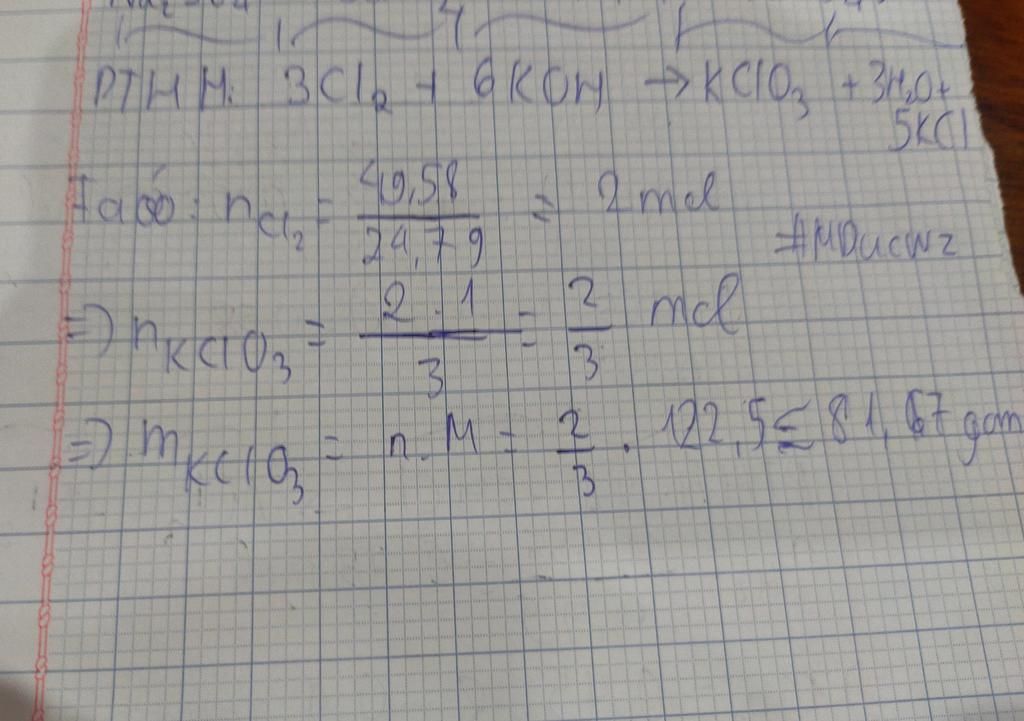 PTHH: 3Cl₂ + 6KOH → KClO₃ + 3H₂O +
5KCl
Ta có: nCl₂ = 49,58 / 24,79 = 2 mol
#MDucwz
=> nKClO₃ = 2.1 / 3 = 2/3 mol
=> mKClO₃ = n.M = 2/3 . 122,5 ≈ 81,67 gam